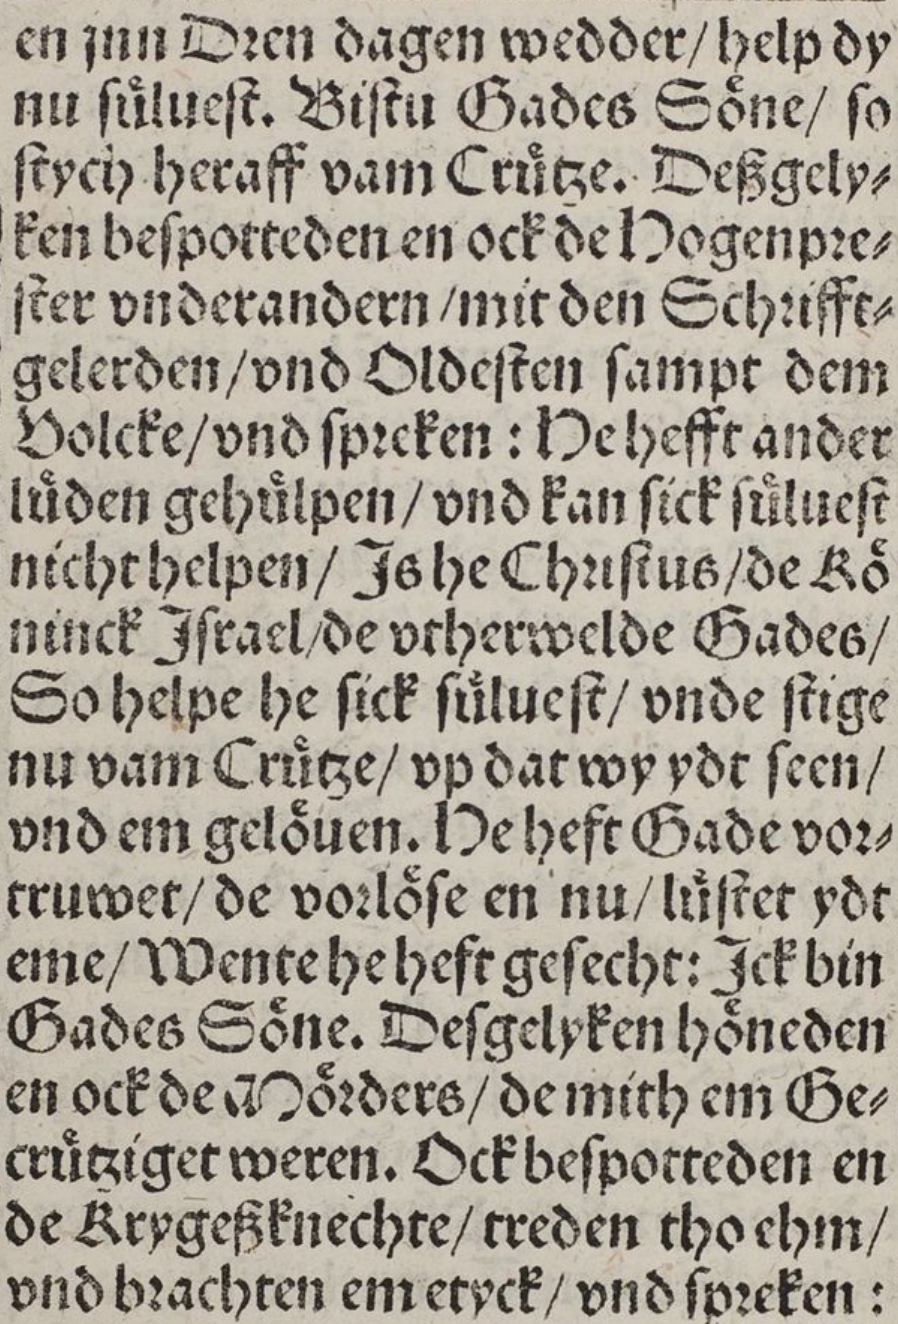 en jnn Dren dagen wedder/ help dy
nu sůluest. Bistu Gades Söne/ so
stych heraff vam Crůtze. Deßgely⸗
ken bespotteden en ock de Hogenpre⸗
ster vnderandern /mit den Schrifft⸗
gelerden/vnd Oldesten sampt dem
Volcke/vnd spreken : He hefft ander
lůden gehůlpen/ vnd kan sick sůluest
nicht helpen/ Js he Christus/de Kö
ninck Jsrael/de vtherwelde Gades/
So helpe he sick sůluest/ vnde stige
nu vam Crůtze/ vp dat wy ydt seen/
vnd em gelöuen. He heft Gade vor⸗
truwet/ de vorlöse en nu/ lůstet ydt
eme/ Wente he heft gesecht: Jck bin
Gades Söne. Desgelyken höneden
en ock de Mörders/ de mith em Ge⸗
crůtziget weren. Ock bespotteden en
de Krygeßknechte/ treden tho ehm/
vnd brachten em etyck/ vnd spreken :